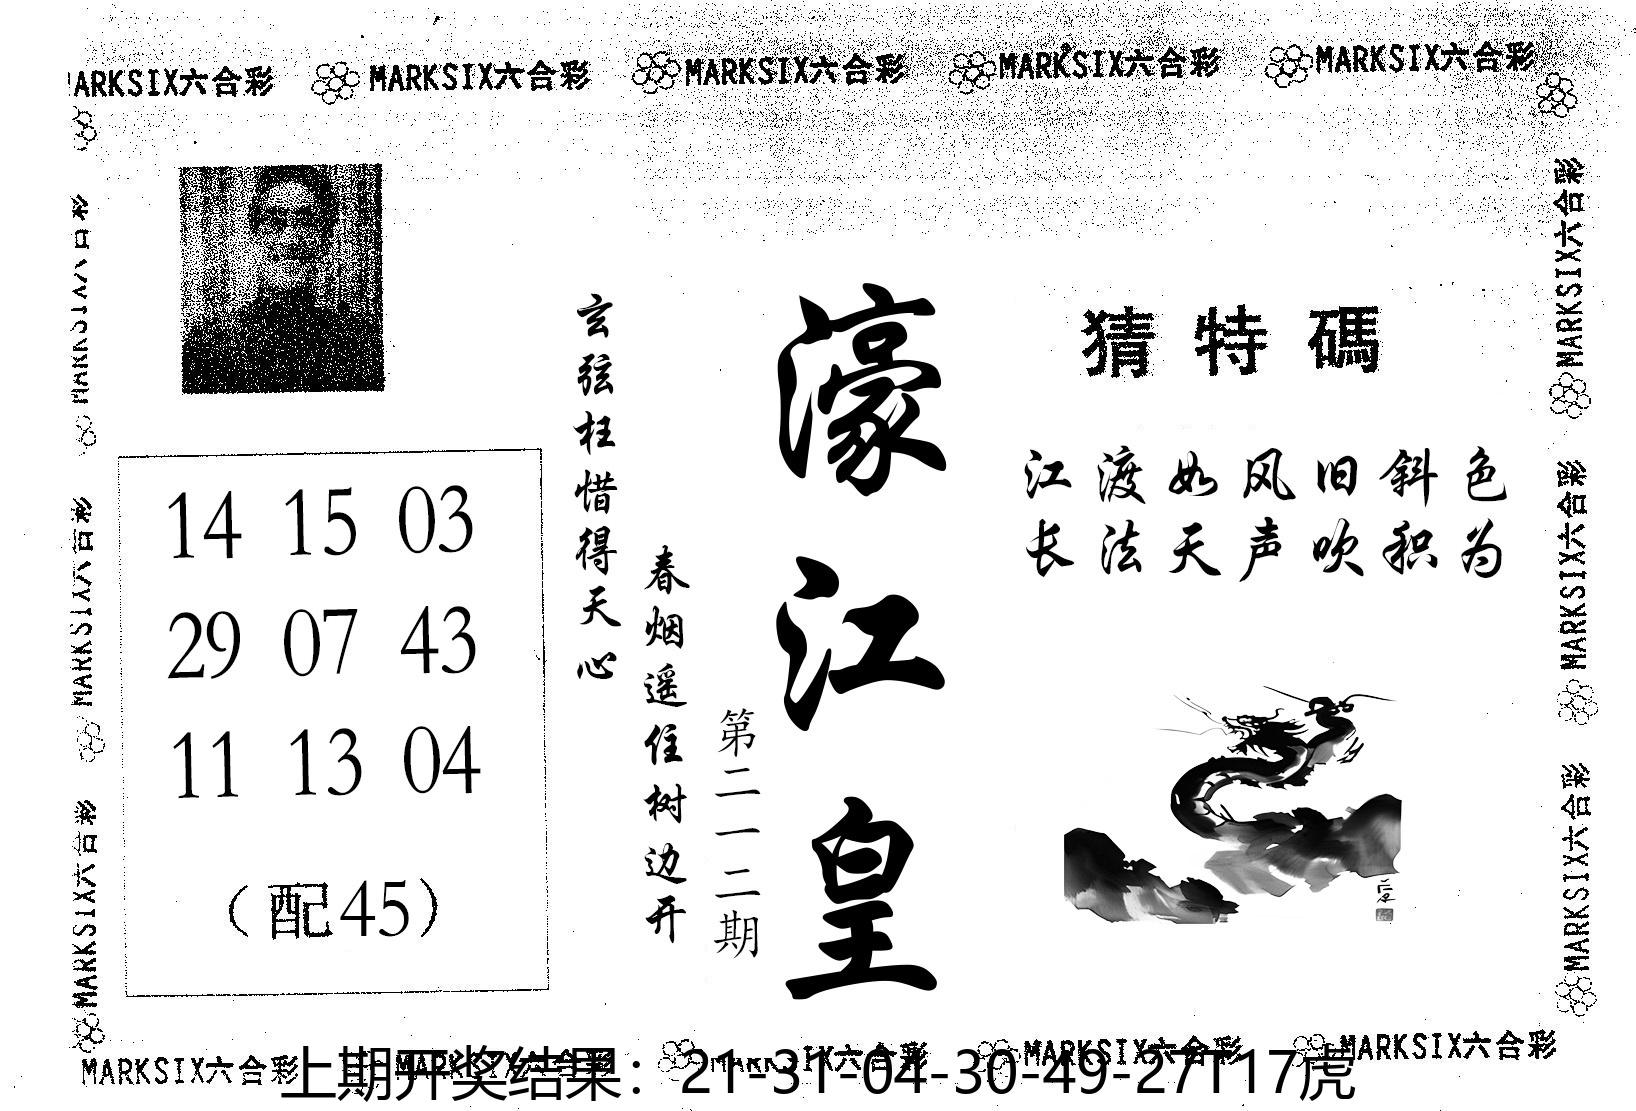 MARKSIX六合彩 MARKSIX六合彩 MARKSIX六合彩 MARKSIX六合彩 MARKSIX六合彩
MARKSIX六合彩
MARKSIX六合彩
MARKSIX六合彩
14 15 03
29 07 43
11 13 04
（配45）
玄弦枉惜得天心
春烟遥住树边开
第二一二期
濠江皇
猜特碼
江渡如风旧斜色
长法天声吹积为
MARKSIX六合彩
MARKSIX六合彩
MARKSIX六合彩
MARKSIX六合彩 MARKSIX六合彩 MARKSIX六合彩 MARKSIX六合彩 MARKSIX六合彩
上期开奖结果：21-31-04-30-49-27T17虎